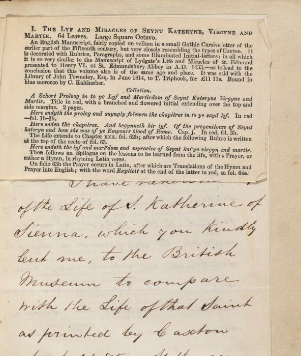 I. THE LYF AND MIRACLES OF SEYNT KATERYNE, VIRGYNE AND
MARTIR. 64 Leaves. Large Square Octavo.
An English Manuscript, fairly copied on vellum in a small Gothic Cursive letter of the
earlier part of the Fifteenth century, but very closely resembling the types of Caxton. It
is decorated with Borders, Paragraphs, and some Illuminated Initial-letters; in all which
it is so very similar to the Manuscript of Lydgate's Life and Miracles of St. Edmund
presented to Henry VI. at St. Edmondsbury Abbey in A.D. 1433,—as to lead to the
conclusion that this volume also is of the same age and place. It was sold with the
Library of John Towneley, Esq. in June 1814, to T. Triphook, for £11 11s. Bound in
blue morocco by C. Kalthoeber.
Collation.
A Schort Prolog in to ye Lyf and Martirdom of Seynt Kateryne Virgyne and
Martir. Title in red, with a branched and flowered initial extending over the top and
side margins. 2 pages.
Here endyth the prolog and
in red
fol. 1b-2b.
Cap. j. In red, fol. 2b.
The Life extends to Chapter xxix. fol. 65b, after which the following Rubric is written
at the top of the recto of fol. 65.
Here endyth the lyf and martirdom and
of Seynt
virgyn and martir.
Then follows an epilogue on the lessons to be learned from the life, with a Prayer, or
rather a Hymn, in rhyming Latin verse.
On folio 65b the Prayer occurs in Latin, after which are Translations of the Hymn and
Prayer into English; with the word Explicit at the end of the latter in red, on fol. 64a.
I have
of the Life of S. Katherine of
Sienna, which you kindly
lent me, to the British
Museum to compare
with the Life of that Saint
as printed by Caxton